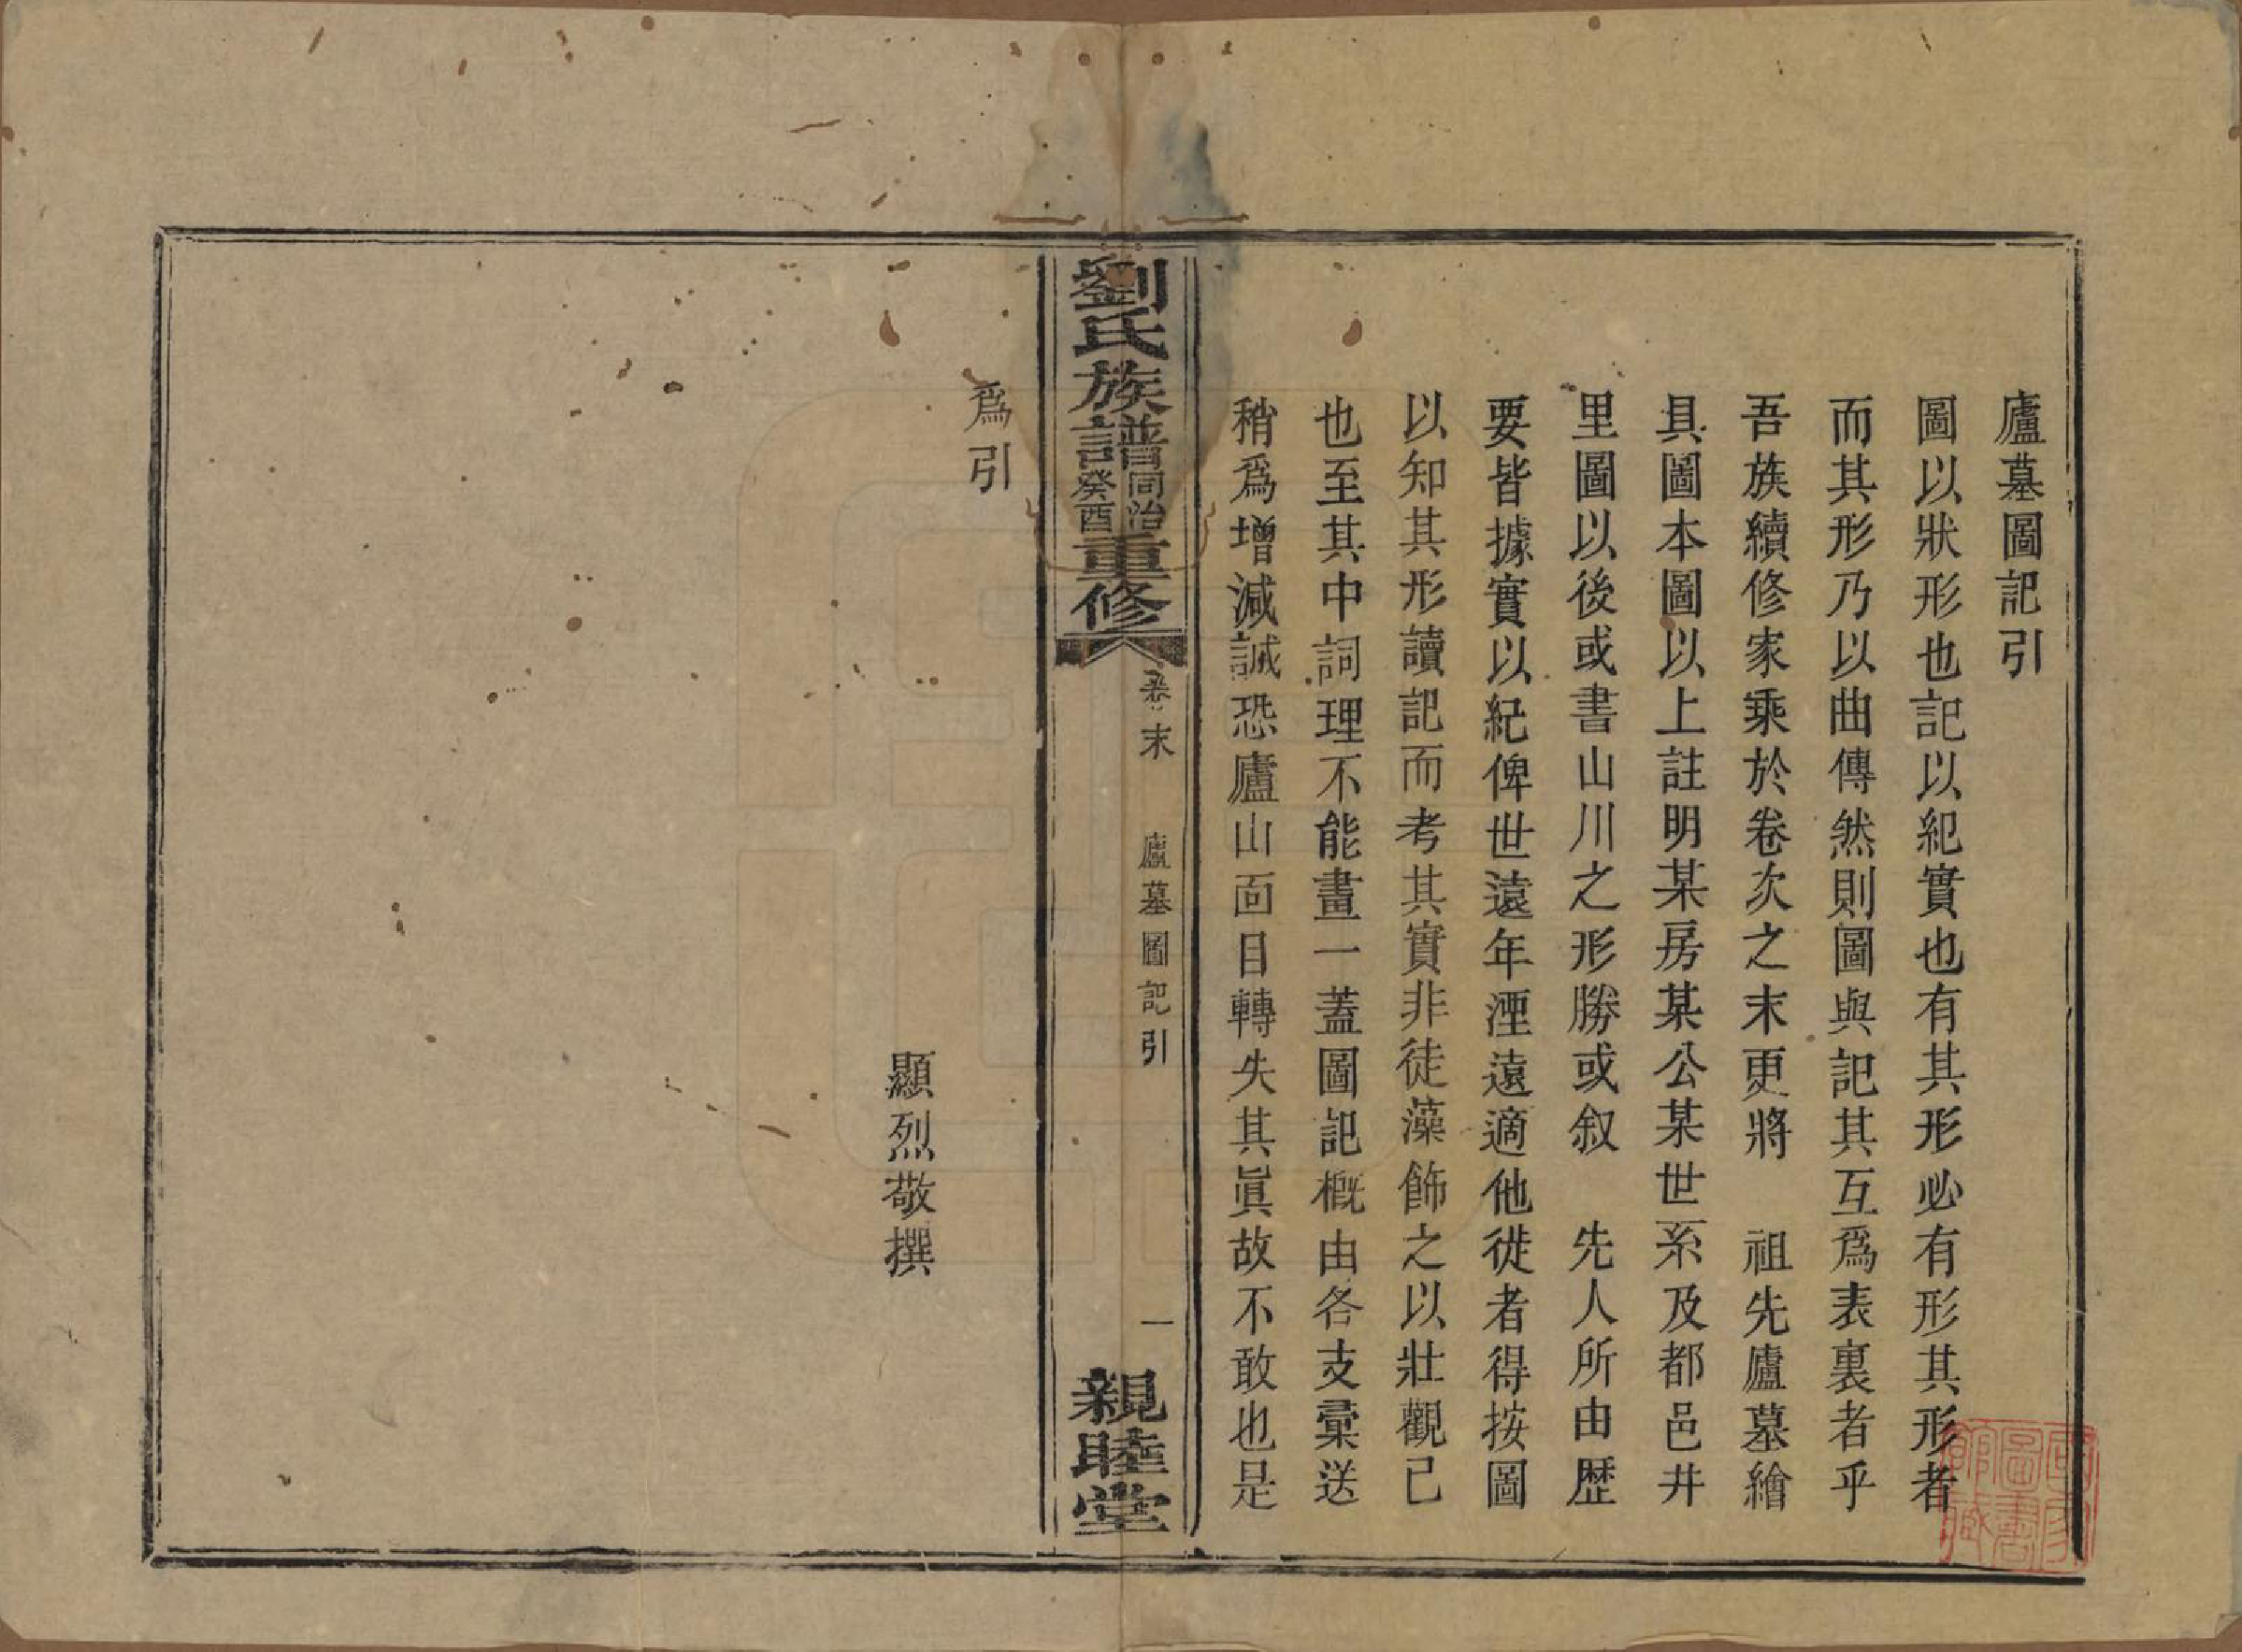 廬墓圖記引
圖以狀形也記以紀實也有其形必有形其形者
而其形乃以曲傳然則圖與記其互爲表裏者乎
吾族續修家乘於卷次之末更將　祖先廬墓繪
具圖本圖以上註明某房某公某世系及都邑井
里圖以後或書山川之形勝或叙　先人所由歷
要皆據實以紀俾世遠年湮遠適他徙者得按圖
以知其形讀記而考其實非徒藻飾之以壯觀已
也至其中詞理不能畫一蓋圖記槪由各支彙送
稍爲增減誠恐廬山面目轉失其眞故不敢也是
劉氏族譜同治癸酉重修
卷末
廬墓圖記引
一
親睦堂
爲引
顯烈敬撰
國家
圖書
館藏